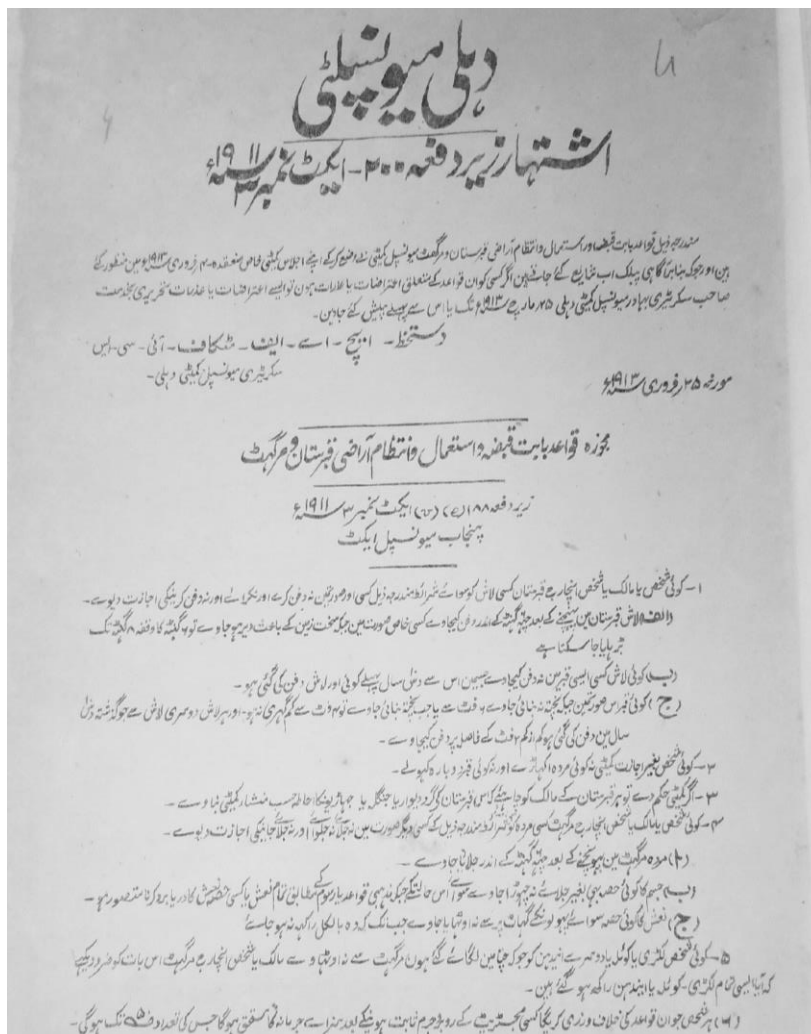 دہلی میونسپلٹی
اشتہار زیر دفعہ ۲۰۰ - ایکٹ نمبر ۳ سنہ ۱۹۱۱ء
مندرجہ ذیل قواعد بابت قبضہ اور استعمال و انتظام آراضی قبرستان و مرگہٹ میونسپل کمیٹی نے وضع کرکے اپنے اجلاس کمیٹی خاص منعقدہ ۴ فروری سنہ ۱۹۱۳ء مین منظور کئے
ہین اور جوکہ بنا بر آگاہی پبلک اب شایع کئے جاتے ہین اگر کسی کو ان قواعد کے متعلق اعتراضات یا عذرات ہون تو ایسے اعتراضات یا عذرات تحریری بخدمت
صاحب سکرٹری بہادر میونسپل کمیٹی دہلی ۲۵ مارچ سنہ ۱۹۱۳ء تک یا اس سے پہلے پیش کئے جاوین۔
دستخط - ایچ - اے - ایف - مٹکاف - آئی - سی - ایس
سکرٹری میونسپل کمیٹی دہلی -
مورخہ ۲۵ فروری سنہ ۱۹۱۳ء
مجوزہ قواعد بابت قبضہ و استعمال و انتظام آراضی قبرستان و مرگہٹ
زیر دفعہ ۱۸۸ ایکٹ نمبر ۳ سنہ ۱۹۱۱ء
پنجاب میونسپل ایکٹ
۱ - کوئی شخص یا مالک یا شخص انچارج قبرستان کسی لاش کو سوائے شرائط مندرجہ ذیل کسی اور صورتمین نہ دفن کرے اور نکرائے اور نہ دفن کرنیکی اجازت دیوے -
(الف) لاش قبرستان مین پہنچنے کے بعد چھہ گہنٹہ کے اندر دفن کیجاوے کسی خاص صورت مین جبکہ سخت زمین کے باعث دیر ہو جاوے تو ۶ گہنٹہ کا وقفہ ۸ گہنٹہ تک
بڑہایا جا سکتا ہے
(ب) کوئی لاش کسی ایسی قبر مین نہ دفن کیجاوے جسمین اس سے دس سال پہلے کوئی اور لاش دفن کی گئی ہو -
(ج) کوئی قبر اس صورتمین جبکہ پختہ نہ بنائی جاوے ۶ فٹ سے یا جب پختہ بنائی جاوے تو ۴ فٹ سے کم گہری نہ ہو - اور ہر لاش دوسری لاش سے جو گذشتہ دس
سال مین دفن کی گئی ہو کم از کم ۲ فٹ کے فاصلہ پر دفن کیجاوے -
۲ - کوئی شخص بغیر اجازت کمیٹی نہ کوئی مردہ اکہاڑے اور نہ کوئی قبر دوبارہ کہولے -
۳ - اگر کمیٹی حکم دے تو ہر قبرستان کے مالک کو چاہیئے کہ اس قبرستان کی گرد دیوار یا جنگل یا جہاڑیونکا احاطہ حسب منشار کمیٹی بناوے -
۴ - کوئی شخص یا مالک یا شخص انچارج مرگہٹ کسی مردہ کو شرائط مندرجہ ذیل کے کسی دیگر صورت مین نہ جلائے نہ جلوائے اور نہ جلائے جانیکی اجازت دیوے -
مردہ مرگہٹ مین پہونچنے کے بعد چھہ گہنٹہ کے اندر جلایا جاوے -
(ب) جسم کا کوئی حصہ بہی بغیر جلائے نہ چہوڑا جاوے سوائے اس حالت کے جبکہ مذہبی قواعد یا رسوم کے مطابق تمام نعش یا کسی حصہ نعش کا دریا برد کرنا متصور ہو -
(ج) نعش کا کوئی حصہ سوائے پہولونکے گہاٹ پر سے نہ اوٹہایا جاوے جب تک کہ وہ بالکل راکہہ نہ ہو جائے
۵ - کوئی شخص لکڑی یا کوئلہ یا دوسرے ایندہن کو جو کہ چتا مین لگائے گئے ہون مرگہٹ سے نہ اوٹہاوے مالک یا شخص انچارج مرگہٹ اس بات کو ضرور دیکہے
کہ آیا ایسی تمام لکڑی - کوئلہ یا ایندہن راکہہ ہو گئے ہین -
(۶) جو شخص ان قواعد کی خلاف ورزی کریگا کسی مجسٹریٹ کے روبرو جرم ثابت ہونیکے بعد سزائے جرمانہ کا مستحق ہوگا جس کی تعداد تک ہوگی -